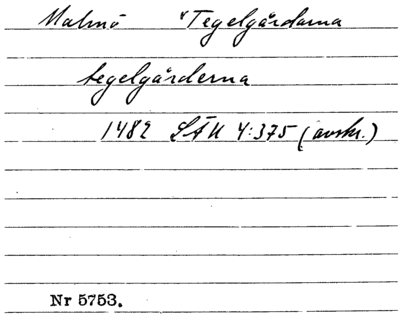 Malmö "Tegelgårdarna
tegelgårderna
1482 LÄU 4:375 (avskr.)
Nr 5753.